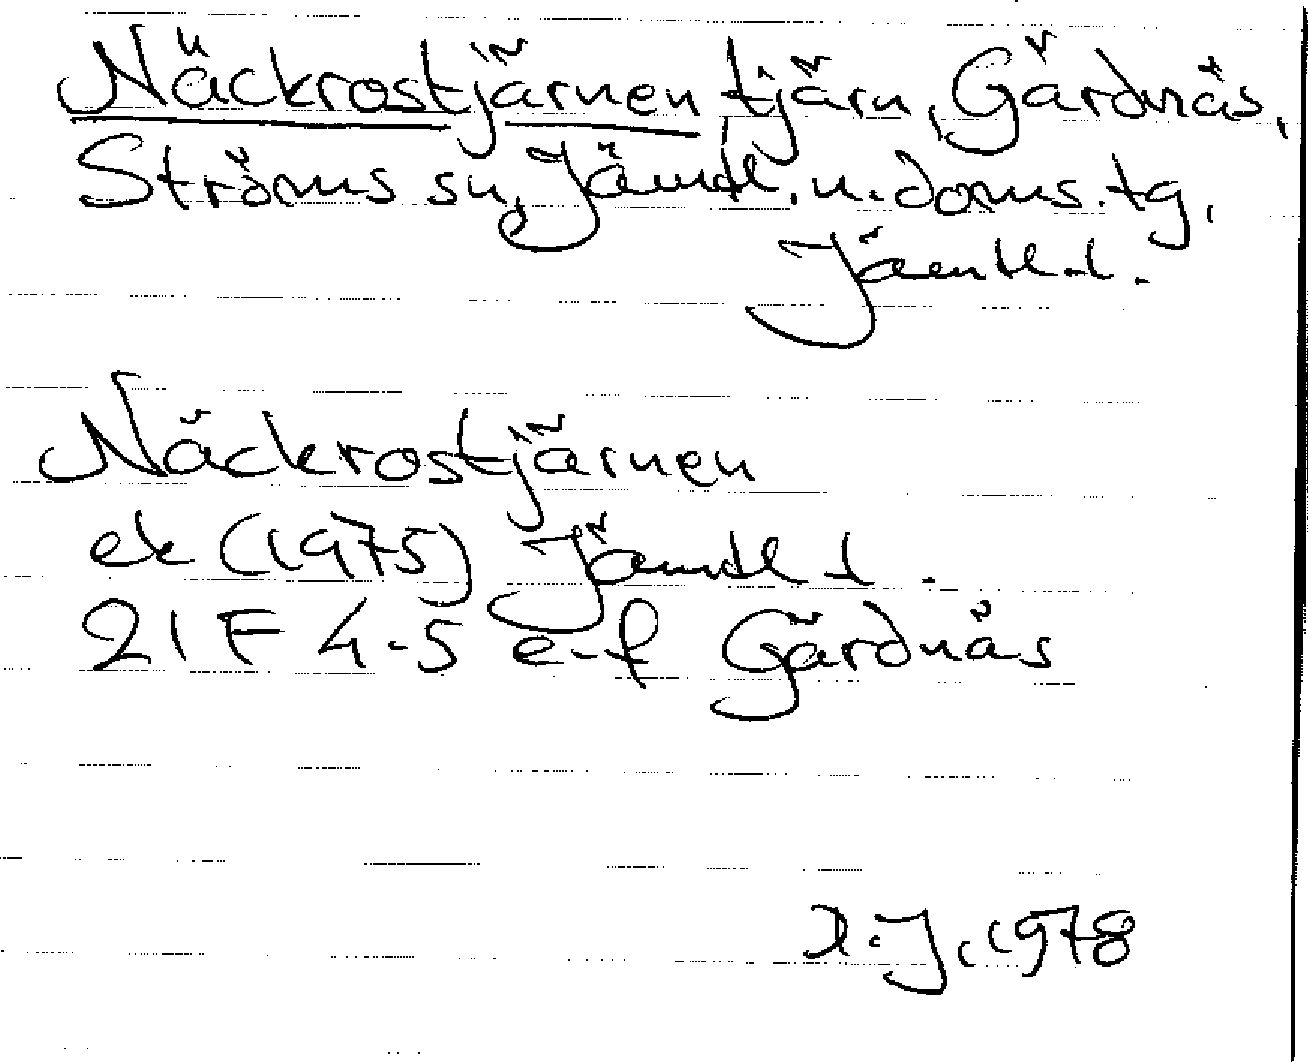 Näckrostjärnen tjärn, Gärdnäs,
Ströms sn, Jämtl. n. doms. tg,
Jämtl. l.
Näckrostjärnen
ek (1975) Jämtl l.
21 F 4-5 e-f Gärdnäs
J. 1978